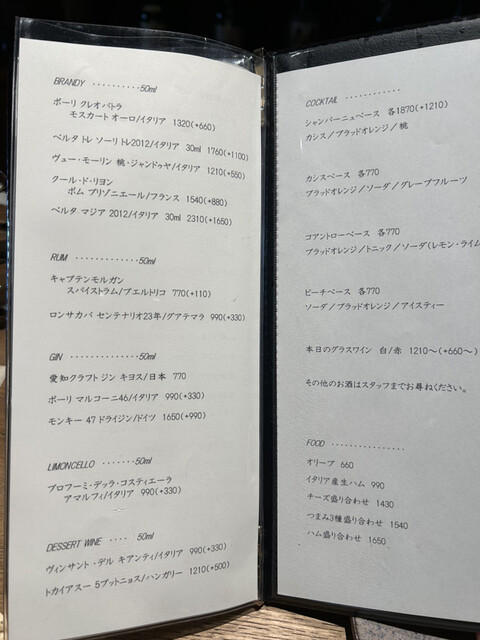 BRANDY ··········50ml
ポーリ クレオパトラ
モスカート オーロ/イタリア 1320(+660)
ベルタ トレ ソーリ トレ2012/イタリア 30ml 1760(+1100)
ヴュー・モーリン 桃・ジャンドゥヤ/イタリア 1210(+550)
クール・ド・リヨン
ポム プリゾニエール/フランス 1540(+880)
ベルタ マジア 2012/イタリア 30ml 2310(+1650)
RUM ·············50ml
キャプテンモルガン
スパイストラム/プエルトリコ 770(+110)
ロンサカパ センテナリオ23年/グアテマラ 990(+330)
GIN ··············50ml
愛知クラフト ジン キヨス/日本 770
ポーリ マルコーニ46/イタリア 990(+330)
モンキー 47 ドライジン/ドイツ 1650(+990)
LIMONCELLO ·······50ml
プロフーミ・デッラ・コスティエーラ
アマルフィ/イタリア 990(+330)
DESSERT WINE ···· 50ml
ヴィンサント・デル キアンティ/イタリア 990(+330)
トカイアスー 5プットニョス/ハンガリー 1210(+500)
COCKTAIL ·············
シャンパーニュベース 各1870(+1210)
カシス/ブラッドオレンジ/桃
カシスベース 各770
ブラッドオレンジ/ソーダ/グレープフルーツ
コアントローベース 各770
ブラッドオレンジ/トニック/ソーダ(レモン・ライム
ピーチベース 各770
ソーダ/ブラッドオレンジ/アイスティー
本日のグラスワイン 白/赤 1210～(+660～)
その他のお酒はスタッフまでお尋ねください。
FOOD ················
オリーブ 660
イタリア産生ハム 990
チーズ盛り合わせ 1430
つまみ3種盛り合わせ 1540
ハム盛り合わせ 1650